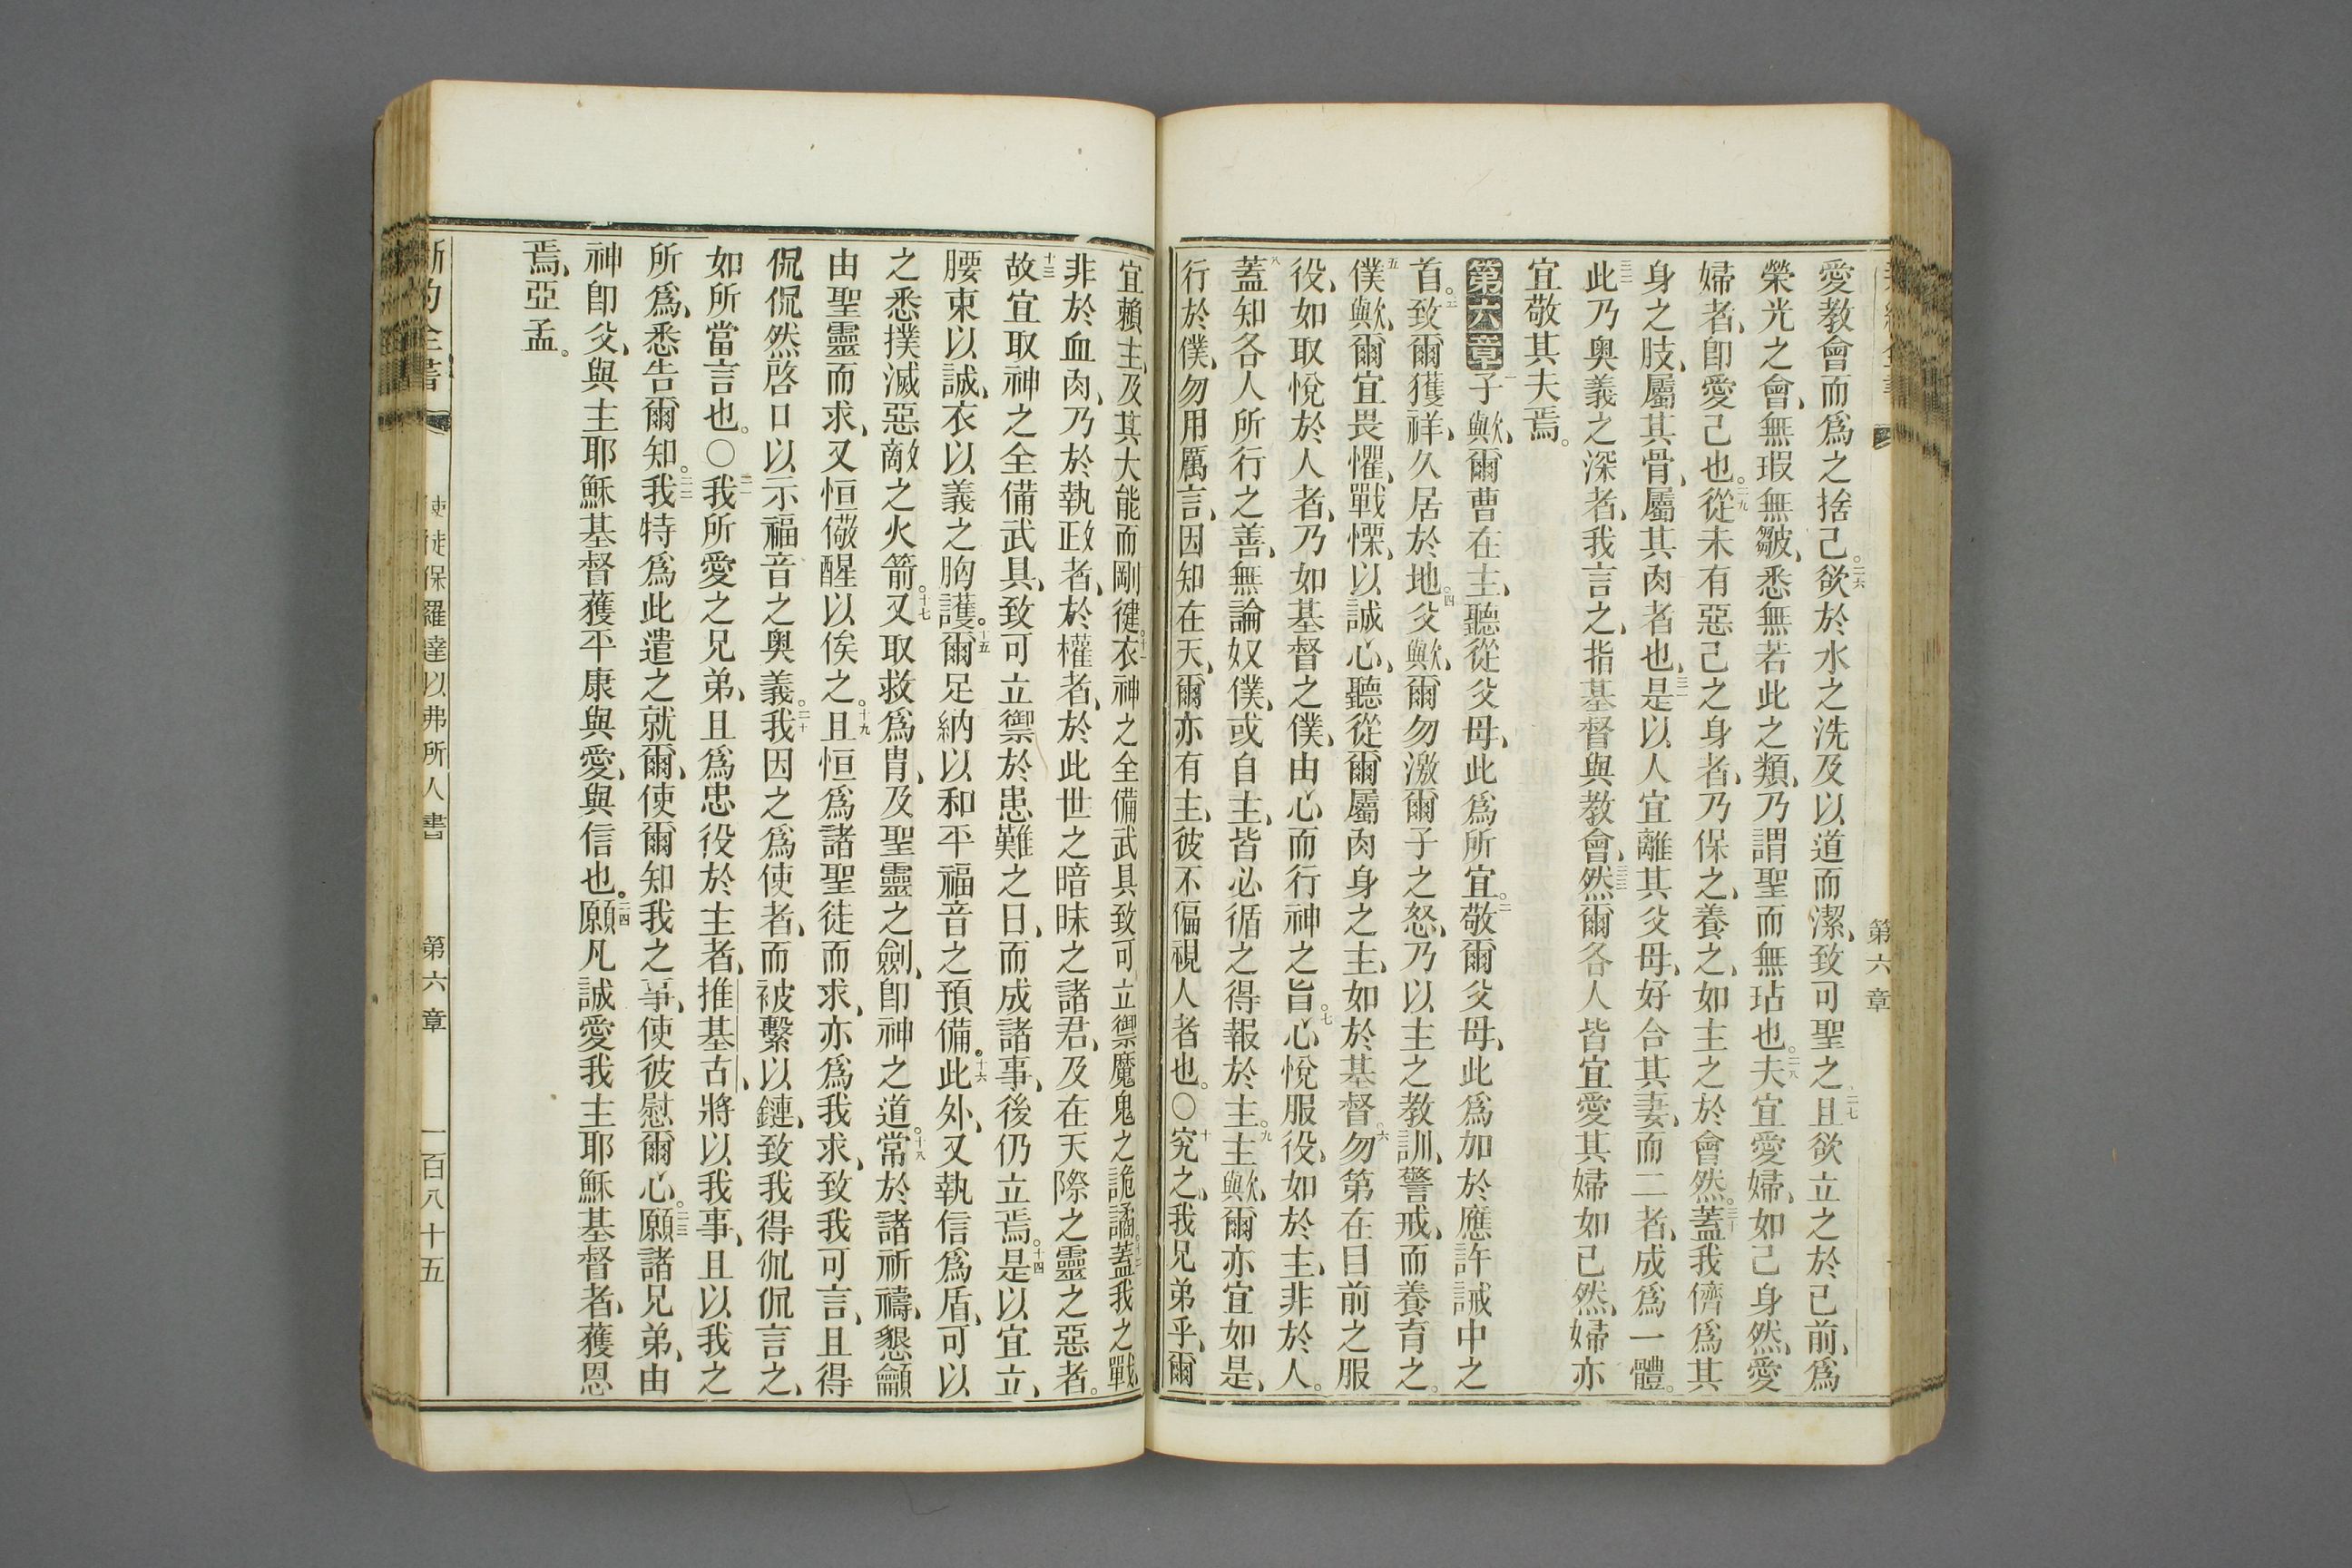 第六章
愛教會而爲之捨己。二六欲於水之洗及以道而潔、致可聖之、二七且欲立之於己前、爲
榮光之會、無瑕無皺、悉無若此之類、乃謂聖而無玷也。二八夫宜愛婦、如己身然、愛
婦者、卽愛己也。二九從未有惡己之身者、乃保之、養之、如主之於會然。三十蓋我儕爲其
身之肢、屬其骨、屬其肉者也、三一是以人宜離其父母、好合其妻、而二者、成爲一體。
三二此乃奥義之深者、我言之、指基督與教會、三三然爾各人皆宜愛其婦如已然、婦亦
宜敬其夫焉。
第六章一子歟、爾曹在主、聽從父母、此爲所宜。二敬爾父母、此爲加於應許誡中之
首。三致爾獲祥、久居於地。四父歟、爾勿激爾子之怒、乃以主之教訓、警戒、而養育之。
五僕歟、爾宜畏懼、戰慄、以誠心、聽從爾屬肉身之主、如於基督。六勿第在目前之服
役、如取悅於人者、乃如基督之僕、由心而行神之旨。七心悅服役、如於主、非於人。
八蓋知各人所行之善、無論奴僕、或自主、皆必循之得報於主。九主歟、爾亦宜如是、
行於僕、勿用厲言、因知在天、爾亦有主、彼不偏視人者也。〇十究之、我兄弟乎、爾
宜賴主、及其大能而剛健。十一衣神之全備武具致可立禦魔鬼之詭譎。十二蓋我之戰、
非於血肉、乃於執政者、於權者、於此世之暗昧之諸君、及在天際之靈之惡者。
十三故宜取神之全備武具、致可立禦於患難之日、而成諸事、後仍立焉。十四是以宜立、
腰束以誠、衣以義之胸護。十五爾足納以和平福音之預備。十六此外、又執信爲盾、可以
之悉撲滅惡敵之火箭。十七又取救爲胄、及聖靈之劍、卽神之道。十八常於諸祈禱、懇籲
由聖靈而求、又恒儆醒以俟之。十九且恒爲諸聖徒而求、亦爲我求、致我可言、且得
侃侃然啓口以示福音之奥義。二十我因之爲使者、而被繫以鏈、致我得侃侃言之、
如所當言也。〇二一我所愛之兄弟、且爲忠役於主者、推基古、將以我事、且以我之
所爲、悉告爾知。二二我特爲此遣之就爾、使爾知我之事、使彼慰爾心。二三願諸兄弟、由
神卽父、與主耶穌基督獲平康與愛、與信也。二四願凡誠愛我主耶穌基督者、獲恩
焉、亞孟。
新約全書 使徒保羅達以弗所人書 第六章 一百八十五